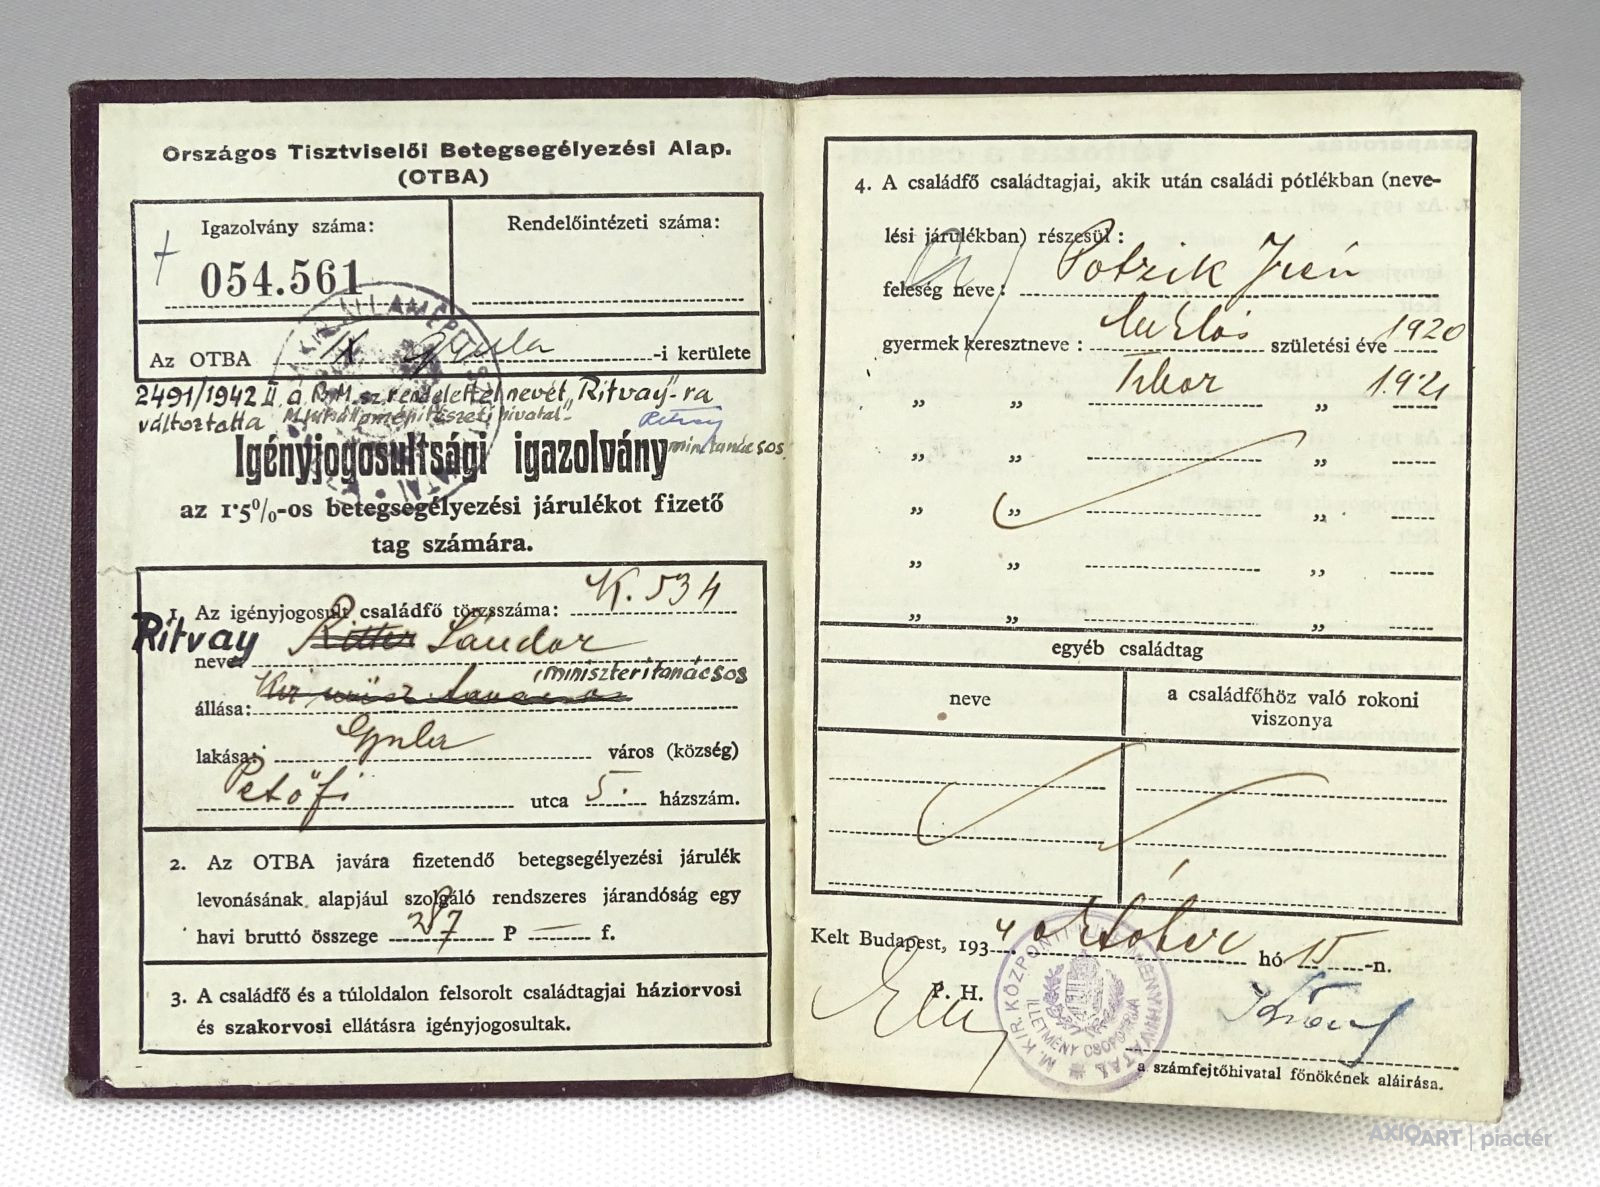 Országos Tisztviselői Betegsegélyezési Alap.
(OTBA)
Igazolvány száma:
054.561
Rendelőintézeti száma:
Az OTBA IX Gyula -i kerülete
2491/1942 II. a B.M. sz. rendelettel nevét „Ritvay"-ra
változtatta M. kir. államépítészeti hivatal"
Ritvay
min. tanácsos
Igényjogosultsági igazolvány
az 1·5%-os betegsegélyezési járulékot fizető
tag számára.
1. Az igényjogosult családfő törzsszáma: K. 534
Ritvay Ritter Sándor
neve
miniszteri tanácsos
állása:
lakása: Gyula város (község)
Petőfi utca 5. házszám.
2. Az OTBA javára fizetendő betegsegélyezési járulék
levonásának alapjául szolgáló rendszeres járandóság egy
havi bruttó összege P — f.
3. A családfő és a túloldalon felsorolt családtagjai háziorvosi
és szakorvosi ellátásra igényjogosultak.
4. A családfő családtagjai, akik után családi pótlékban (neve-
lési járulékban) részesül:
feleség neve: Potzik Irén
gyermek keresztneve: Miklós születési éve 1920
„ „ Tibor „ 1921
„ „ „
„ „ „
„ „ „
„ „ „
egyéb családtag
neve
a családfőhöz való rokoni
viszonya
Kelt Budapest, 1934. október hó 15 -n.
P. H.
M. KIR. KÖZPONTI ILLETMÉNYHIVATAL
ILLETMÉNY CSOPORTJA
a számfejtőhivatal főnökének aláírása.
AXIOART | piactér